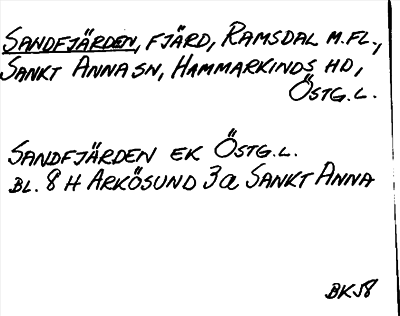 SANDFJÄRDEN, FJÄRD, RAMSDAL M.FL.,
SANKT ANNA SN, HAMMARKINDS HD,
ÖSTG.L.
SANDFJÄRDEN EK ÖSTG.L.
BL. 8 H ARKÖSUND 3a SANKT ANNA
BKJ8